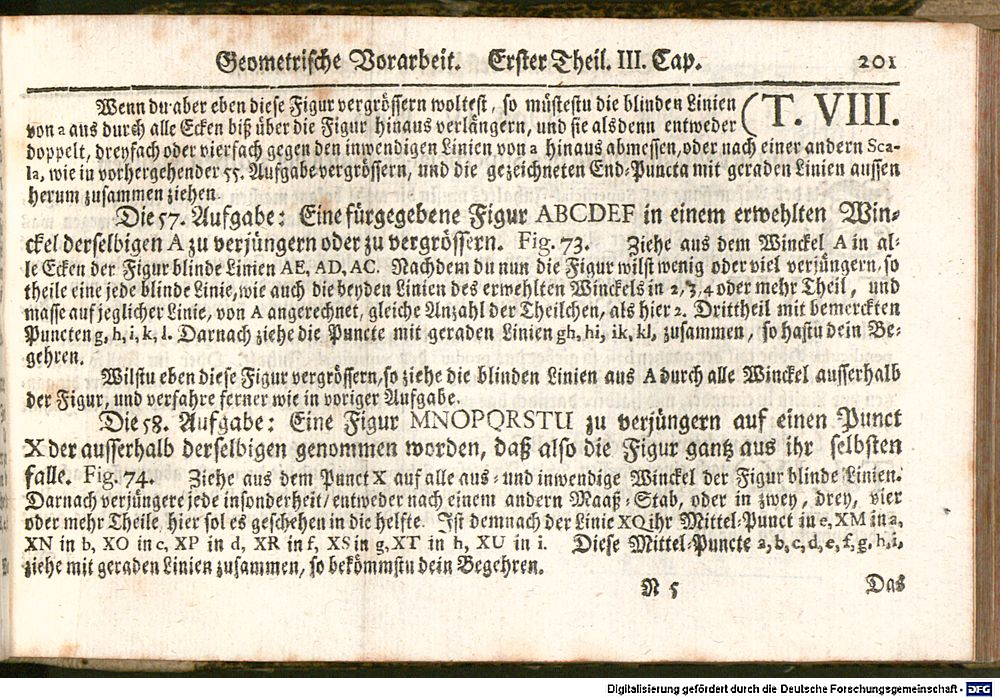 Geometrische Vorarbeit. Erster Theil. III. Cap. 201
Wenn du aber eben diese Figur vergrössern woltest, so müstestu die blinden Linien (T. VIII.
von a aus durch alle Ecken biß über die Figur hinaus verlängern, und sie alsdenn entweder
doppelt, dreyfach oder vierfach gegen den inwendigen Linien von a hinaus abmessen, oder nach einer andern Sca-
la, wie in vorhergehender 55. Aufgabe vergrössern, und die gezeichneten End-Puncta mit geraden Linien aussen
herum zusammen ziehen.
Die 57. Aufgabe: Eine fürgegebene Figur ABCDEF in einem erwehlten Win-
ckel derselbigen A zu verjüngern oder zu vergrössern. Fig. 73. Ziehe aus dem Winckel A in al-
le Ecken der Figur blinde Linien AE, AD, AC. Nachdem du nun die Figur wilst wenig oder viel verjüngern, so
theile eine jede blinde Linie, wie auch die beyden Linien des erwehlten Winckels in 2, 3, 4 oder mehr Theil, und
masse auf jeglicher Linie, von A angerechnet, gleiche Anzahl der Theilchen, als hier 2. Drittheil mit bemerckten
Puncten g, h, i, k, l. Darnach ziehe die Puncte mit geraden Linien gh, hi, ik, kl, zusammen, so hastu dein Be-
gehren.
Wilstu eben diese Figur vergrössern, so ziehe die blinden Linien aus A durch alle Winckel ausserhalb
der Figur, und verfahre ferner wie in voriger Aufgabe.
Die 58. Aufgabe: Eine Figur MNOPQRSTU zu verjüngern auf einen Punct
X der ausserhalb derselbigen genommen worden, daß also die Figur gantz aus ihr selbsten
falle. Fig. 74. Ziehe aus dem Punct X auf alle aus- und inwendige Winckel der Figur blinde Linien.
Darnach verjüngere jede insonderheit/ entweder nach einem andern Maaß-Stab, oder in zwey, drey, vier
oder mehr Theile, hier sol es geschehen in die helfte. Ist demnach der Linie XQ ihr Mittel-Punct in e, XM in a,
XN in b, XO in c, XP in d, XR in f, XS in g, XT in h, XU in i. Diese Mittel-Puncte a, b, c, d, e, f, g, h, i,
ziehe mit geraden Linien zusammen, so bekömmstu dein Begehren.
N 5 Das
Digitalisierung gefördert durch die Deutsche Forschungsgemeinschaft - DFG